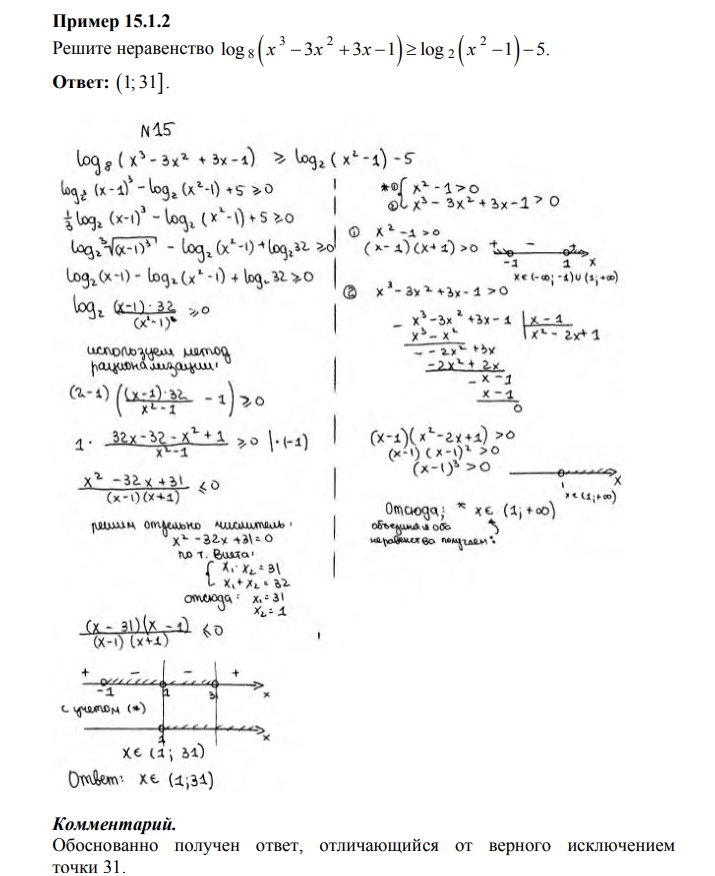 Пример 15.1.2
Решите неравенство log₈(x³ − 3x² + 3x − 1) ≥ log₂(x² − 1) − 5.
Ответ: (1; 31].
N15
log₈(x³ - 3x² + 3x - 1) ≥ log₂(x² - 1) - 5
log₂³(x-1)³ - log₂(x²-1) + 5 ≥ 0
1/3 log₂(x-1)³ - log₂(x²-1) + 5 ≥ 0
log₂ ∛(x-1)³ - log₂(x²-1) + log₂32 ≥ 0
log₂(x-1) - log₂(x²-1) + log₂32 ≥ 0
log₂ (x-1)·32 / (x²-1) ≥ 0
используем метод
рационализации:
(2-1) ((x-1)·32 / x²-1 - 1) ≥ 0
1 · 32x - 32 - x² + 1 / x²-1 ≥ 0 |·(-1)
x² - 32x + 31 / (x-1)(x+1) ≤ 0
решим отдельно числитель:
x² - 32x + 31 = 0
по т. Виета:
{ x₁ · x₂ = 31
x₁ + x₂ = 32
отсюда: x₁ = 31
x₂ = 1
(x - 31)(x - 1) / (x-1)(x+1) ≤ 0
+ - - +
-1 1 31 x
с учетом (*)
1 x
x ∈ (1; 31)
Ответ: x ∈ (1; 31)
* ① { x² - 1 > 0
② x³ - 3x² + 3x - 1 > 0
① x² - 1 > 0
(x-1)(x+1) > 0 + - +
-1 1 x
x ∈ (-∞; -1) ∪ (1; +∞)
② x³ - 3x² + 3x - 1 > 0
- x³ - 3x² + 3x - 1 | x - 1
x³ - x² | x² - 2x + 1
- -2x² + 3x
-2x² + 2x
- x - 1
x - 1
0
(x-1)(x² - 2x + 1) > 0
(x-1)(x-1)² > 0
(x-1)³ > 0
1 x
x ∈ (1; +∞)
Отсюда; * x ∈ (1; +∞)
объединяя оба
неравенства получаем:
Комментарий.
Обоснованно получен ответ, отличающийся от верного исключением
точки 31.